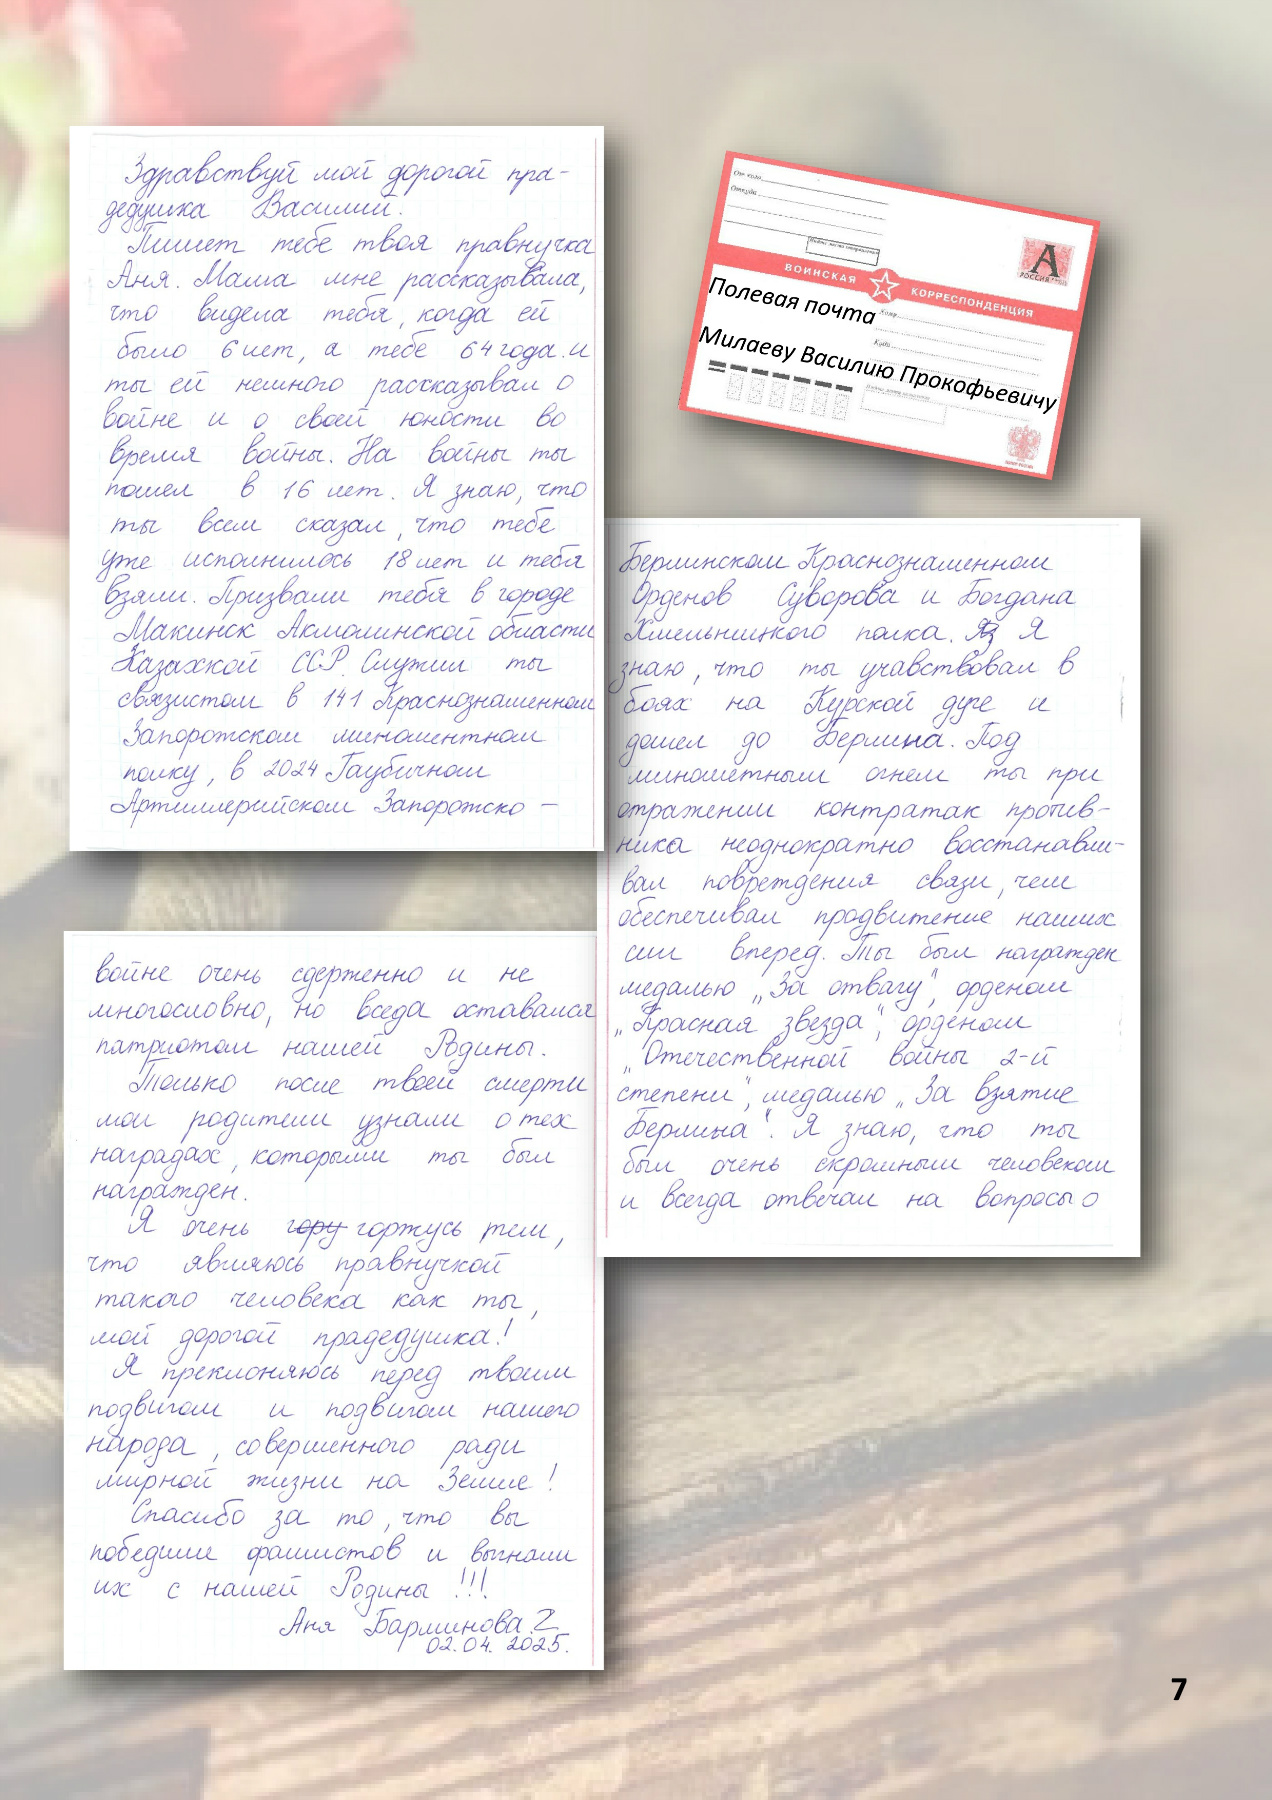 Здравствуй мой дорогой пра-
дедушка Василий.
Пишет тебе твоя правнучка
Аня. Мама мне рассказывала,
что видела тебя, когда ей
было 6 лет, а тебе 64 года. и
ты ей немного рассказывал о
войне и о своей юности во
время войны. На войны ты
пошел в 16 лет. Я знаю, что
ты всем сказал, что тебе
уже исполнилось 18 лет и тебя
взяли. Призвали тебя в городе
Макинск Акмолинской области
Казахской ССР. Служил ты
связистом в 141 Краснознаменном
Запорожском миноментном
полку, в 2024 Гаубичном
Артиллерийском Запорожско –
От кого
Откуда
А
РОССИЯ
ВОИНСКАЯ КОРРЕСПОНДЕНЦИЯ
Полевая почта
Кому
Куда
Милаеву Василию Прокофьевичу
Берлинском Краснознаменном
Орденов Суворова и Богдана
Хмельницкого полка. Я
знаю, что ты учавствовал в
боях на Курской дуге и
дошел до Берлина. Под
минометным огнем ты при
отражении контратак против-
ника неоднократно восстанавли-
вал повреждения связи, чем
обеспечивал продвижение наших
сил вперед. Ты был награжден
медалью „За отвагу", орденом
„Красная звезда", орденом
„Отечественной войны 2-й
степени", медалью „За взятие
Берлина". Я знаю, что ты
был очень скромным человеком
и всегда отвечал на вопросы о
войне очень сдерженно и не
многословно, но вседа оставался
патриотом нашей Родины.
Только после твоей смерти
мои родители узнали о тех
наградах, которыми ты был
награжден.
Я очень гору горжусь тем,
что являюсь правнучкой
такого человека как ты,
мой дорогой прадедушка!
Я преклоняюсь перед твоим
подвигом и подвигом нашего
народа, совершенного ради
мирной жизни на Земле!
Спасибо за то, что вы
победили фашистов и выгнали
их с нашей Родины !!!
Аня Барминова
02.04.2025.
7